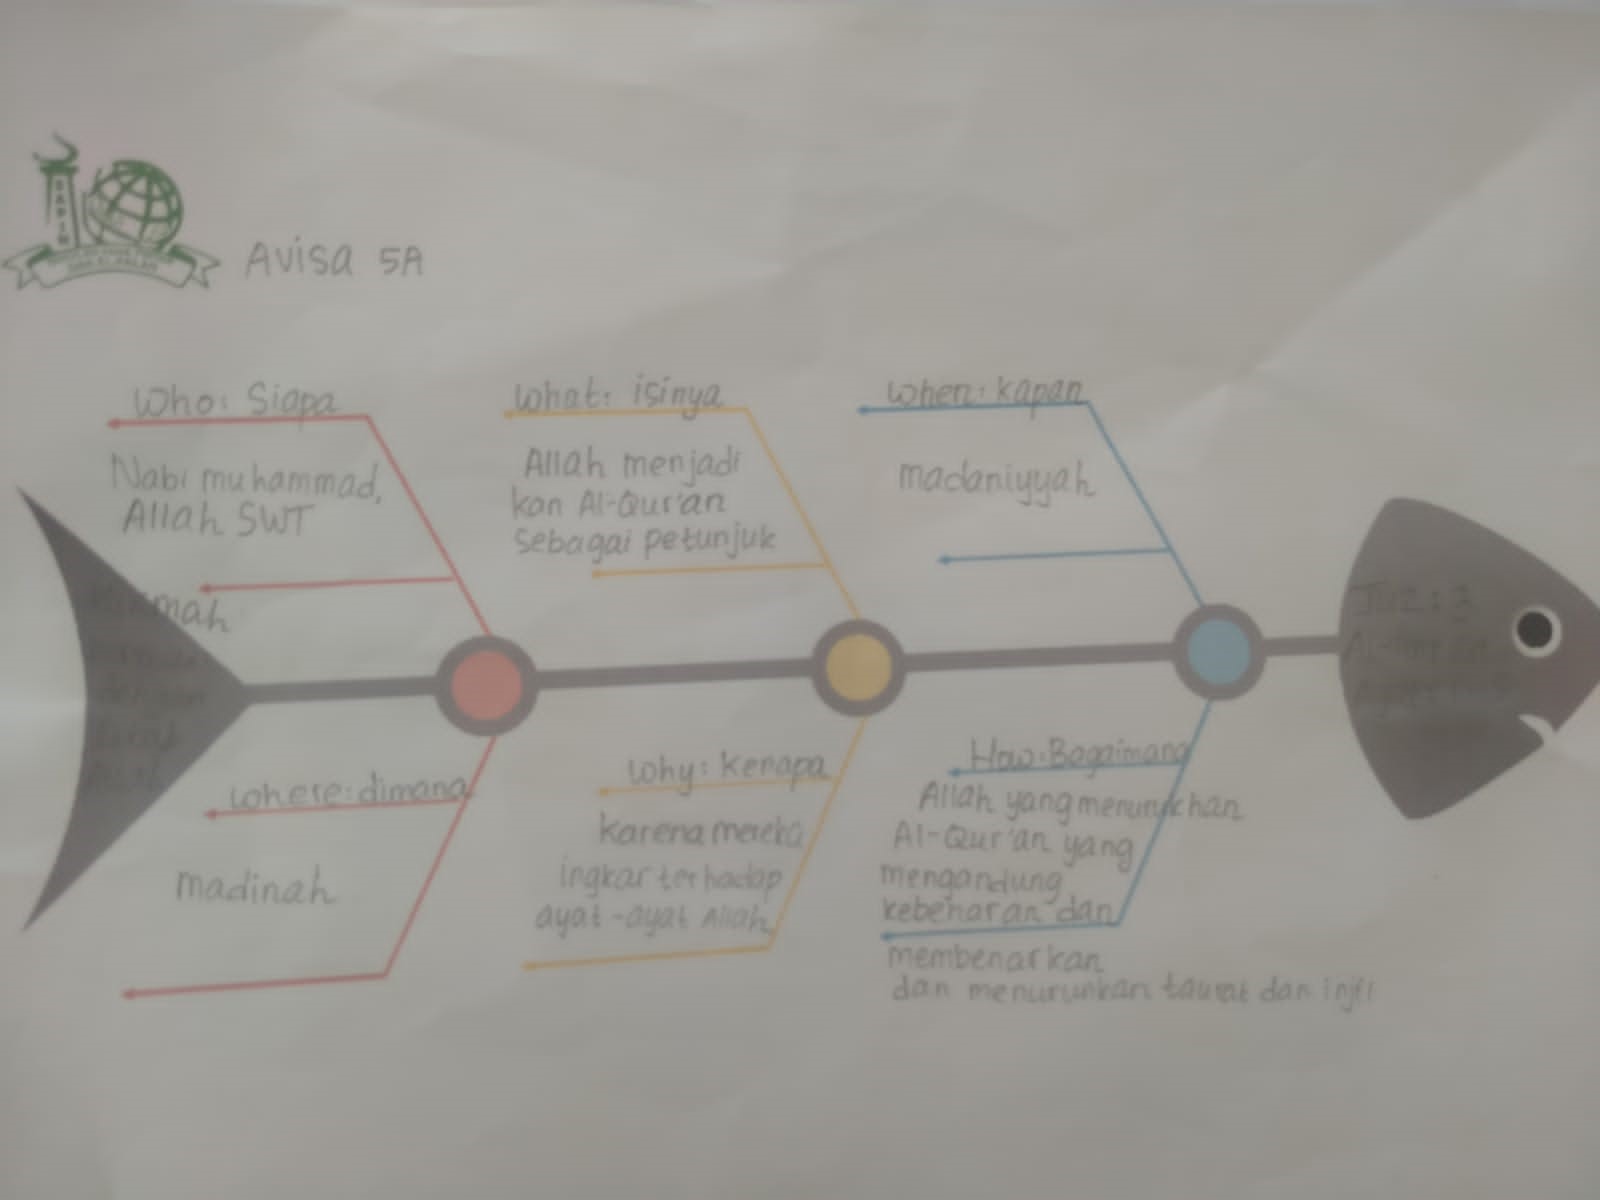 Avisa 5A
Who: Siapa
Nabi muhammad,
Allah SWT
What: isinya
Allah menjadi
kan Al-Qur'an
Sebagai petunjuk
When: kapan
madaniyyah
Juz: 3
where: dimana
madinah
Why: kenapa
karena mereka
ingkar terhadap
ayat-ayat Allah
How: Bagaimana
Allah yang menurunkhan
Al-Qur'an yang
mengandung
kebenaran dan
membenarkan
dan menurunkan taurat dan injil